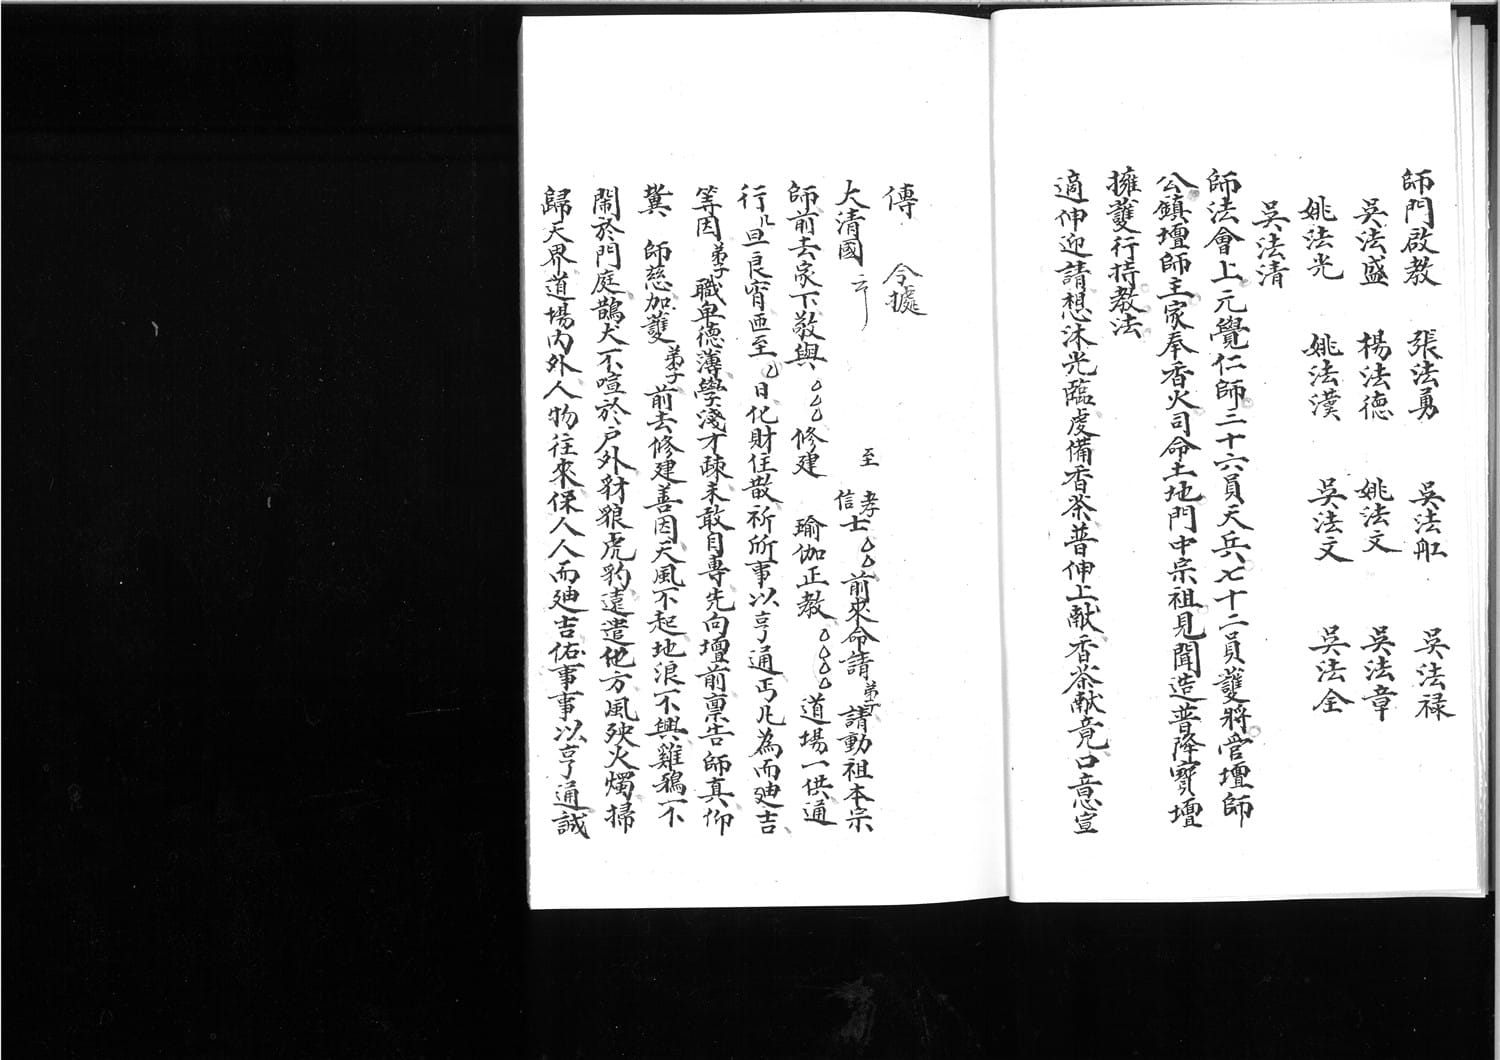 師門啟教 張法勇 吳法舡 吳法禄
吳法盛 楊法德 姚法文 吳法章
姚法光 姚法漢 吳法文 吳法全
吳法清
師法會上元覺仁師三十六員天兵七十二員護將官壇師
公鎮壇師主家奉香火司命土地門中宗祖見聞造普降寶壇
擁護行持教法
適伸迎請想沐光臨虔備香茶普伸上献香茶献竟口意宣
傳 今據
大清國 云 至 孝信士厶厶前來命請弟子請動祖本宗
師前去家下敬與厶厶厶修建 瑜伽正教厶厶厶厶道場一供通
行 旦良宵晅至厶日化財住散祈所事以亨通丐凡為而廸吉
等因弟子職卑德薄學淺才疎未敢自專先向壇前禀告師真仰
冀 師慈加護弟子前去修建善因天風不起地浪不興雞鵝不
鬧於門庭鵲犬不喧於戶外豺狼虎豹遠遣他方風殃火燭掃
歸天界道場內外人物往來保人人而廸吉佑事事以亨通誠